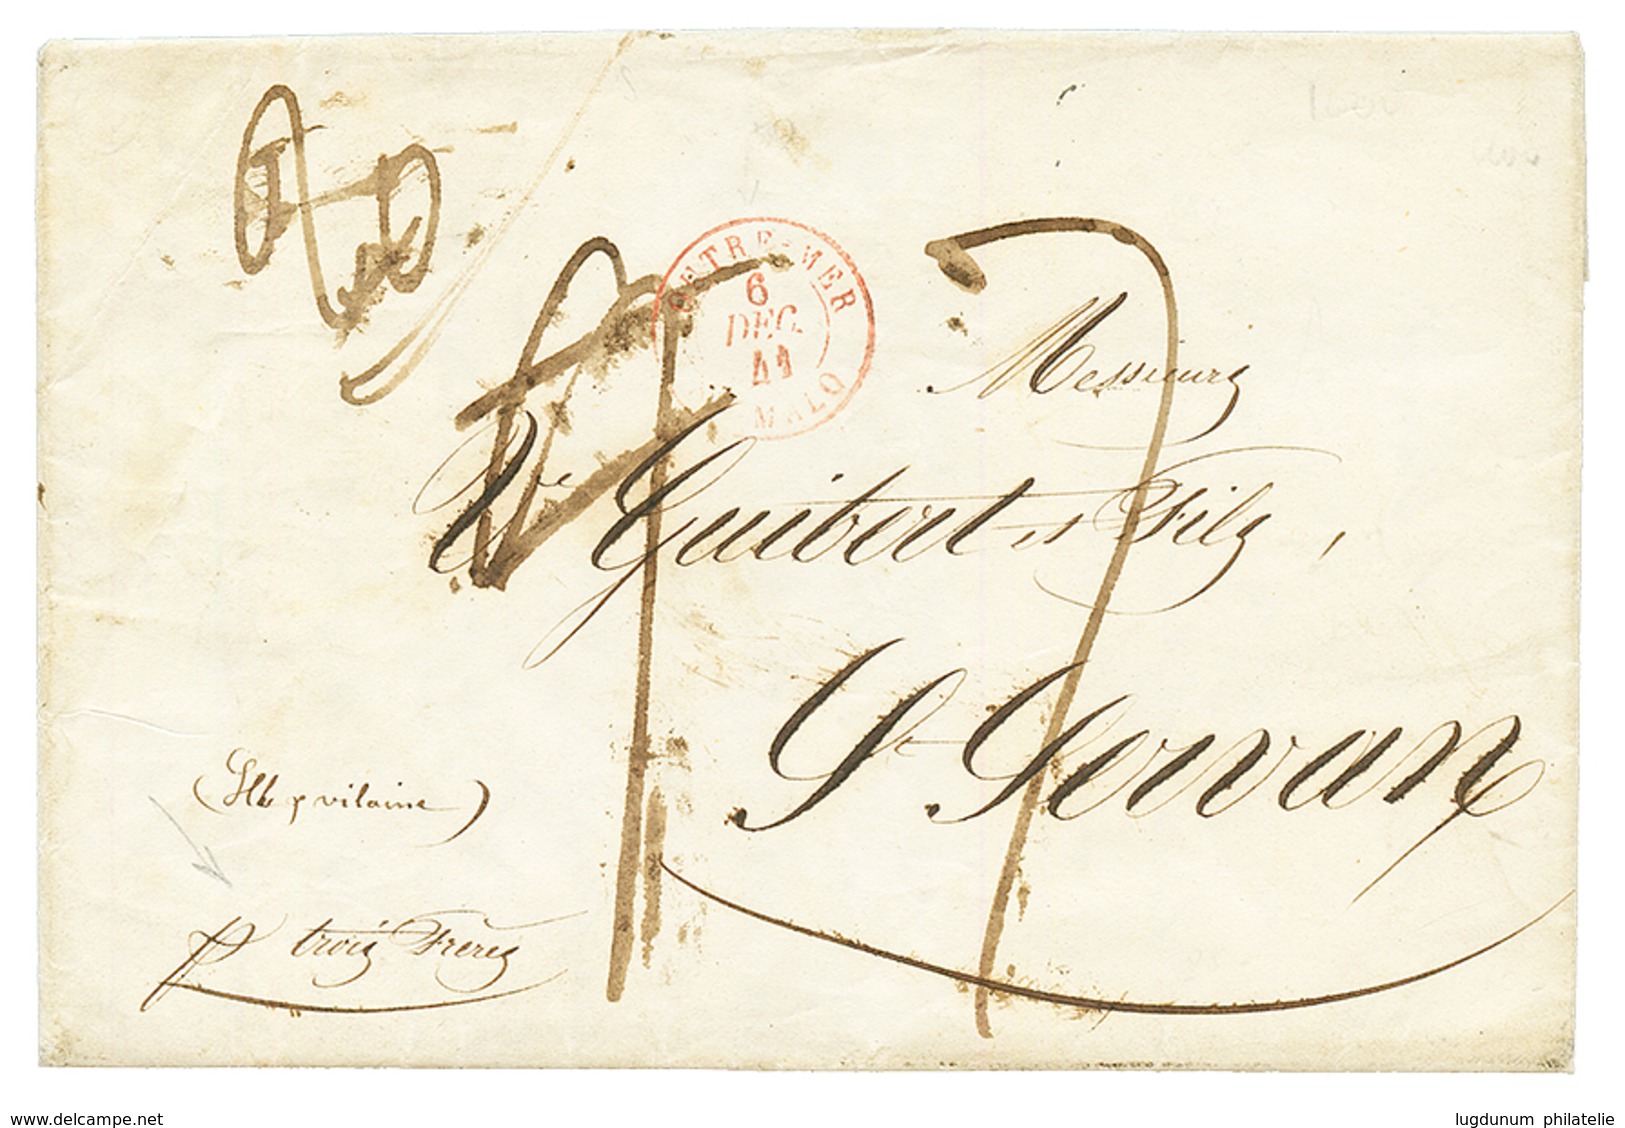 OUTRE-MER
6
DEC.
41
MALO
Messieurs
Vve Guibert et Fils,
St. Servan
(Ille & vilaine)
p trois Freres
www.delcampe.net
lugdunum philatelie